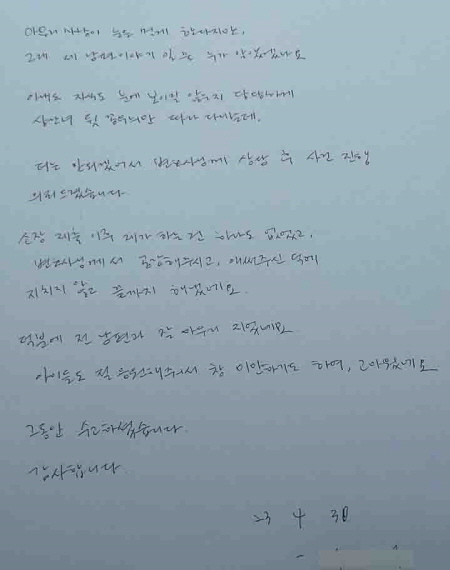 아무리 사랑이 눈도 멀게 한다지만,
그게 제 남편이야기 일 줄 누가 알았겠나요
아내도 자식도 눈에 보이질 않는지 당당하게
상간녀 뒷 꽁무니만 따라 다니는데,
더는 안되겠어서 변호사님께 상담 후 사건 진행
의뢰드렸습니다
소장 제출 이후 제가 하는 건 하나도 없었고,
변호사님께서 공감해주시고, 애써주신 덕에
지치지 않고 끝까지 해냈네요
덕분에 전 남편과 잘 마무리 지었네요
아이들도 절 응원해줘서 참 미안하기도 하며, 고마웠네요
그동안 수고하셨습니다
감사합니다
23 4 30